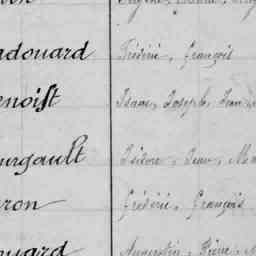 adouard Frédéric, François
enoist Isaac, Joseph, Jean,
urgault Isidore, Jean, Ma
ron Frédéric, François
ouard Augustin, Pierre, M